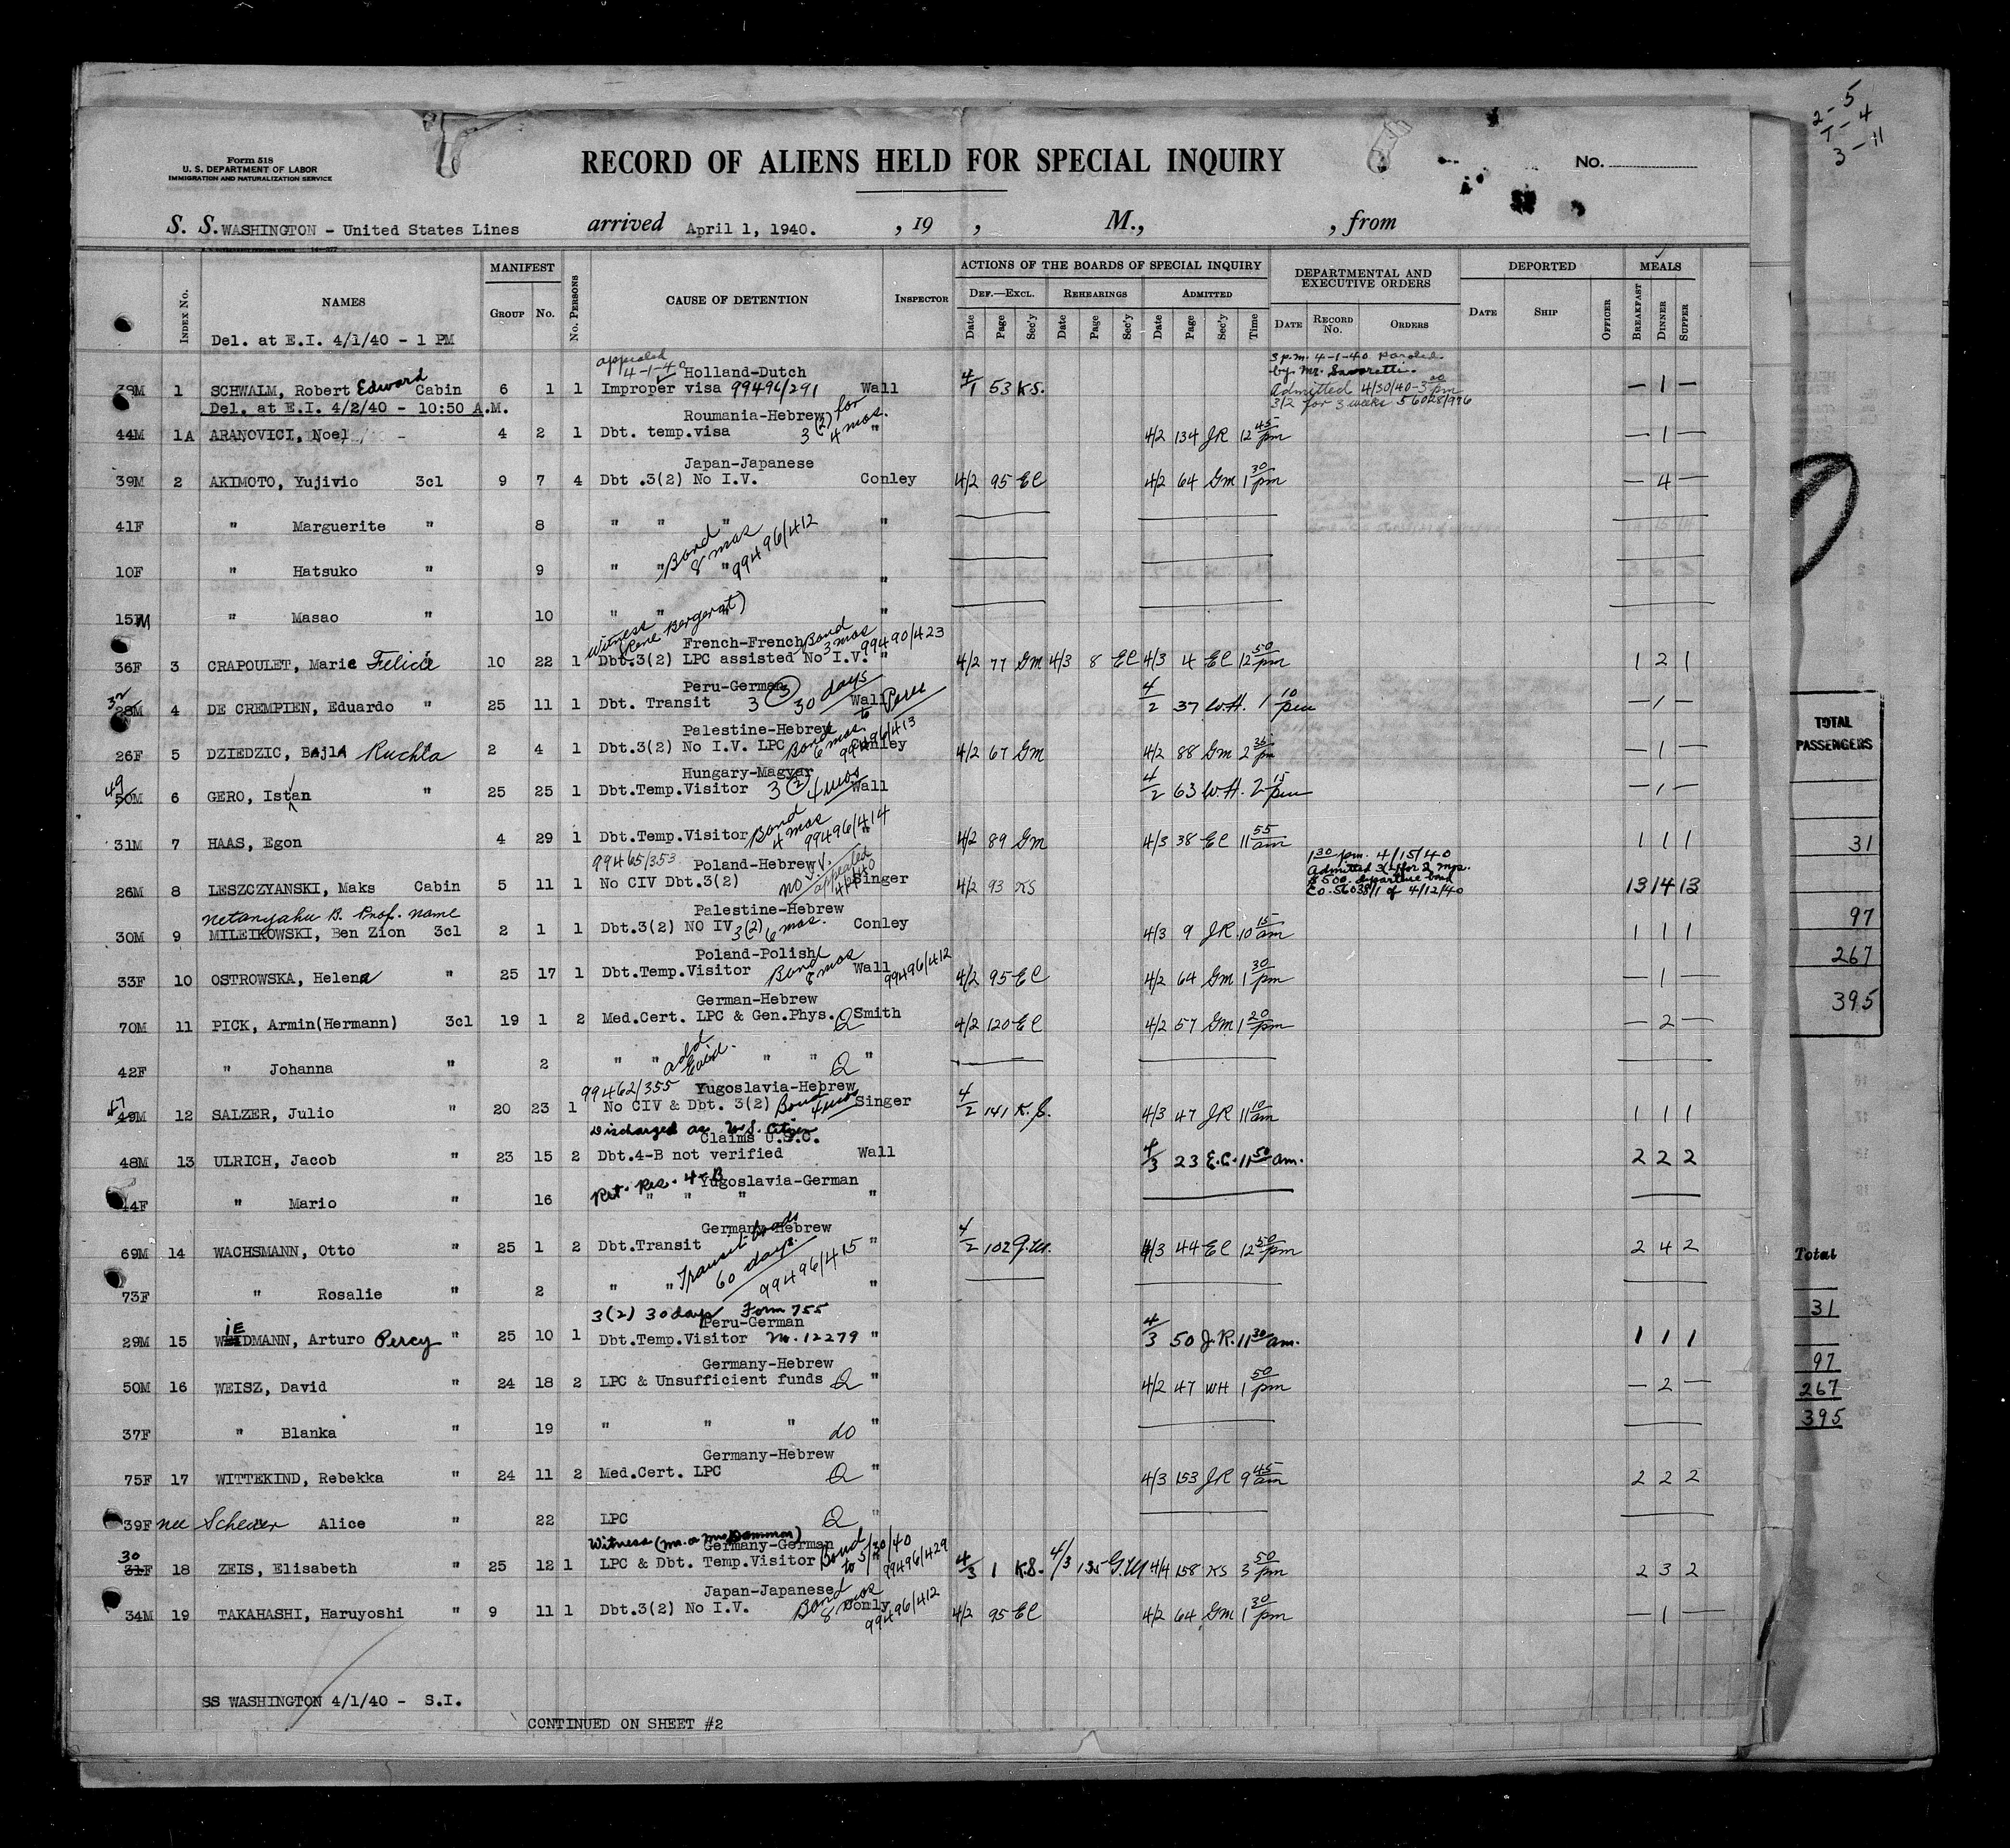 2 - 5
T - 4
3 - 11
Form 518
U. S. DEPARTMENT OF LABOR
IMMIGRATION AND NATURALIZATION SERVICE
RECORD OF ALIENS HELD FOR SPECIAL INQUIRY
No.
S. S. WASHINGTON - United States Lines arrived April 1, 1940. , 19 , M., , from
Index No. NAMES MANIFEST Group No. No. Persons CAUSE OF DETENTION Inspector ACTIONS OF THE BOARDS OF SPECIAL INQUIRY DEPARTMENTAL AND EXECUTIVE ORDERS DEPORTED MEALS
Def.—Excl. Rehearings Admitted
Date Page Sec'y Date Page Sec'y Date Page Sec'y Time Date Record No. Orders Date Ship Officer Breakfast Dinner Supper
Del. at E.I. 4/1/40 - 1 PM
appealed 4-1-40 Holland-Dutch 3 p.m. 4-1-40 Paroled
by Mr.
38M 1 SCHWALM, Robert Edward Cabin 6 1 1 Improper visa 99496/291 Wall 4/1 53 K.S. Admitted 4/30/40 - 3 00 pm — 1 —
3/2 for 3 weeks 56028/996
Del. at E.I. 4/2/40 - 10:50 A.M.
Roumania-Hebrew
44M 1A ARANOVICI, Noel 4 2 1 Dbt. temp.visa 3(2) for 4 mos. " 4/2 134 JR 12 45 pm — 1 —
Japan-Japanese
39M 2 AKIMOTO, Yujivio 3cl 9 7 4 Dbt .3(2) No I.V. Conley 4/2 95 EC 4/2 64 GM 1 30 pm — 4 —
41F " Marguerite " 8 " " " "
Bond 8 mos 99496/412
10F " Hatsuko " 9 " " " "
15M " Masao " 10 " " "
Witness (Rene Bergerat) French-French Bond 3 mos 99490/423
36F 3 CRAPOULET, Marie Felicie 10 22 1 Dbt.3(2) LPC assisted No I.V. " 4/2 77 GM 4/3 8 EC 4/3 4 EC 12 50 pm 1 2 1
Peru-German
32 28M 4 DE CREMPIEN, Eduardo " 25 11 1 Dbt. Transit 3(3) 30 days Wall to Peru 4/2 37 W.H. 1 10 pm — 1 —
Palestine-Hebrew
26F 5 DZIEDZIC, BAJLA Ruchla 2 4 1 Dbt.3(2) No I.V. LPC Bond 6 mos. 99496/413 Conley 4/2 67 GM 4/2 88 GM 2 pm — 1 —
Hungary-Magyar
49 50M 6 GERO, Istan " 25 25 1 Dbt.Temp.Visitor 3(2) 4 mos Wall 4/2 63 W.H. 2 15 pm — 1 —
31M 7 HAAS, Egon 4 29 1 Dbt.Temp.Visitor Bond 4 mos 99496/414 " 4/2 89 GM 4/3 38 EC 11 55 am 1 1 1
99465/353 Poland-Hebrew 1 30 pm. 4/15/40
Admitted 3(2) for 2 mos.
$500. departure bond
26M 8 LESZCZYANSKI, Maks Cabin 5 11 1 No CIV Dbt.3(2) no V. appealed Singer 4/2 93 KS E.O. 56038/1 of 4/12/40 13 14 13
netanyahu B. Prof. name Palestine-Hebrew
30M 9 MILEIKOWSKI, Ben Zion 3cl 2 1 1 Dbt.3(2) NO IV 3(2) 6 mos. Conley 4/3 9 JR 10 15 am 1 1 1
Poland-Polish
33F 10 OSTROWSKA, Helena " 25 17 1 Dbt.Temp.Visitor Bond 8 mos Wall 99496/412 4/2 95 EC 4/2 64 GM 1 30 pm — 1 —
German-Hebrew
70M 11 PICK, Armin(Hermann) 3cl 19 1 2 Med.Cert. LPC & Gen.Phys. Q Smith 4/2 120 EC 4/2 57 GM 1 20 pm — 2 —
add Evid.
42F " Johanna " 2 " " " " Q "
99462/355 Yugoslavia-Hebrew
47 49M 12 SALZER, Julio " 20 23 1 No CIV & Dbt. 3(2) Bond 4 mos Singer 4/2 141 K.S. 4/3 47 JR 11 10 am 1 1 1
Discharged as U.S. Citizen
Claims U.S.C.
48M 13 ULRICH, Jacob " 23 15 2 Dbt.4-B not verified Wall 4/3 23 E.C. 11 50 am. 2 2 2
Ret. Res. 4-B Yugoslavia-German
44F " Mario " 16 " " " "
Germany-Hebrew
69M 14 WACHSMANN, Otto " 25 1 2 Dbt.Transit " 4/2 102 G.M. 4/3 44 EC 12 50 pm 2 4 2
Transit 60 days. 99496/415
73F " Rosalie " 2 " " "
3(2) 30 days Form 755
Peru-German
29M 15 WIEDMANN, Arturo Percy " 25 10 1 Dbt.Temp.Visitor M. 12279 " 4/3 50 J.R. 11 30 am. 1 1 1
Germany-Hebrew
50M 16 WEISZ, David " 24 18 2 LPC & Unsufficient funds Q " 4/2 47 WH 1 50 pm — 2 —
37F " Blanka " 19 " " " do "
Germany-Hebrew
75F 17 WITTEKIND, Rebekka " 24 11 2 Med.Cert. LPC Q " 4/3 153 JR 9 45 am 2 2 2
39F nee Scheuer Alice " 22 LPC Q "
Witness (Mr. a Mrs Dammon)
Germany-German
30 31F 18 ZEIS, Elisabeth " 25 12 1 LPC & Dbt. Temp.Visitor Bond to 5/30/40 99496/429 4/3 1 K.S. 4/3 135 G.M 4/4 158 KS 3 50 pm 2 3 2
Japan-Japanese
34M 19 TAKAHASHI, Haruyoshi " 9 11 1 Dbt.3(2) No I.V. Bond 8 mos 99496/412 4/2 95 EC 4/2 64 GM 1 30 pm — 1 —
SS WASHINGTON 4/1/40 - S.I.
CONTINUED ON SHEET #2
TOTAL
PASSENGERS
31
97
267
395
Total
31
97
267
395